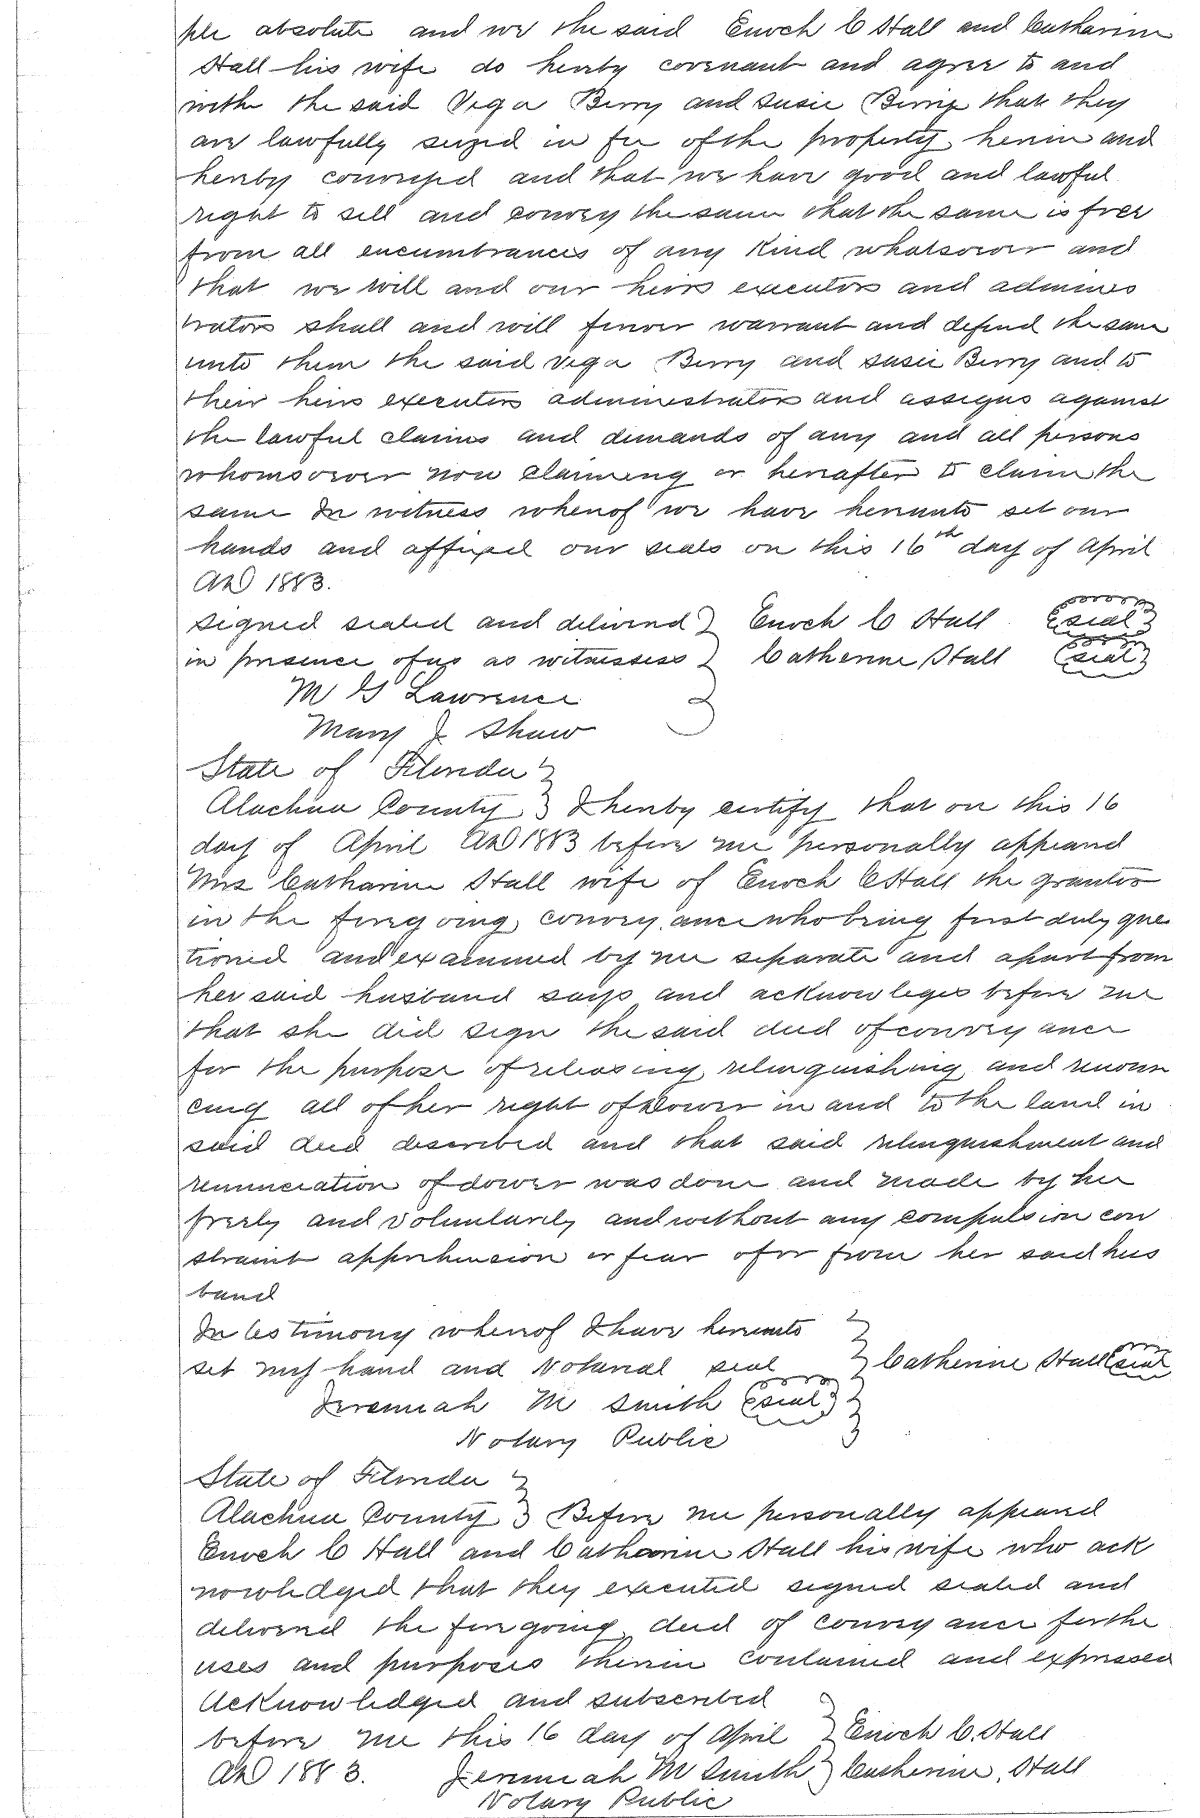 ple absolute and we the said Enoch C Hall and Catharine
Hall his wife do hereby covenant and agree to and
with the said Vega Berry and Susie Berrie that they
are lawfully seized in fee of the property herein and
hereby conveyed and that we have good and lawful
right to sell and convey the same that the same is free
from all encumbrances of any Kind whatsoever and
that we will and our heirs executors and adminis
trators shall and will forever warrant and defend the same
unto them the said Vega Berry and Susie Berry and to
their heirs executors administrators and assigns against
the lawful claims and demands of any and all persons
whomsoever now claiming or hereafter to claim the
same In witness whereof we have hereunto set our
hands and affixed our seals on this 16th day of April
AD 1883.
signed sealed and delivered } Enoch C Hall (seal)
in presence of us as witnesses } Catherine Hall (seal)
M G Lawrence
Mary J Shaw }
State of Florida }
Alachua County } I hereby certify that on this 16
day of April AD 1883 before me personally appeared
Mrs Catharine Hall wife of Enoch C Hall the grantor
in the foregoing conveyance who being first duly ques
tioned and examined by me separate and apart from
her said husband says and acknowleges before me
that she did sign the said deed of conveyance
for the purpose of releasing relinquishing and renoun
cing all of her right of Dower in and to the land in
said deed described and that said relinquishment and
renunciation of dower was done and made by her
freely and voluntarily and without any compulsion con
straint apprehension or fear of or from her said hus
band
In testimony whereof I have hereunto
set my hand and Notarial seal } Catherine Hall (seal)
Jeremiah M Smith (seal) }
Notary Public
State of Florida }
Alachua County } Before me personally appeared
Enoch C Hall and Catharine Hall his wife who ack
nowledged that they executed signed sealed and
delivered the foregoing deed of conveyance for the
uses and purposes therein contained and expressed
Acknowledged and subscribed
before me this 16 day of April } Enoch C. Hall
AD 1883. Jeremiah M Smith } Catherine Hall
Notary Public